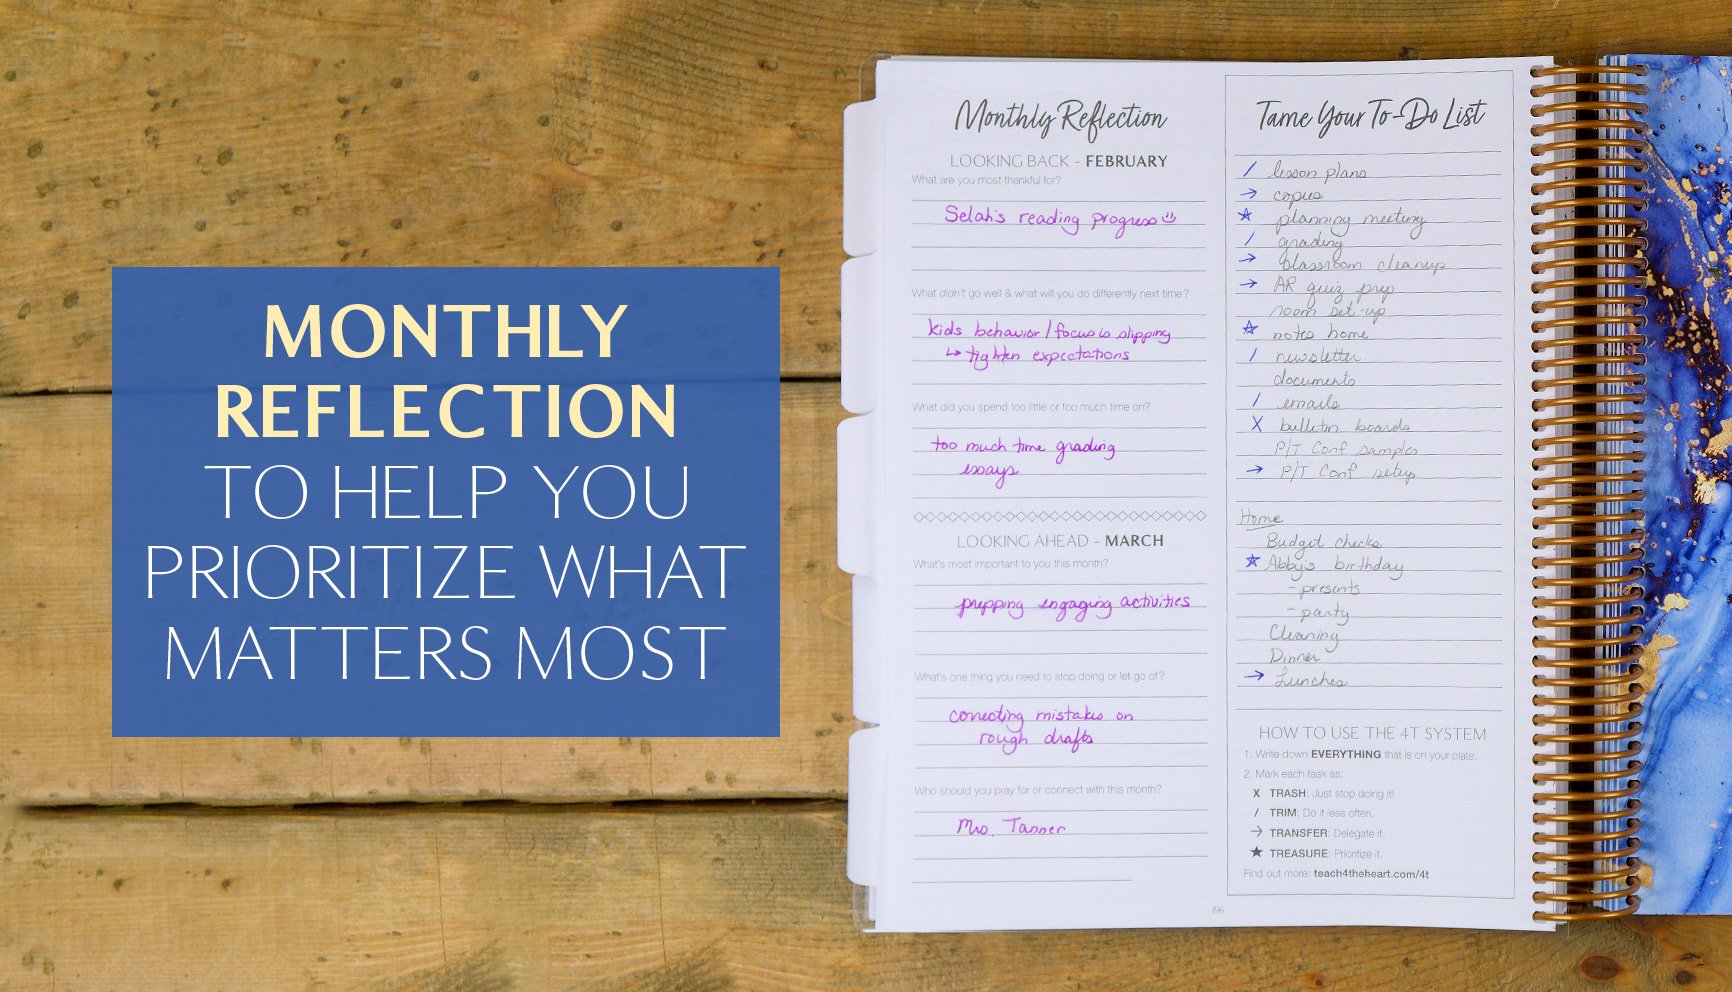 MONTHLY
REFLECTION
TO HELP YOU
PRIORITIZE WHAT
MATTERS MOST
Monthly Reflection
LOOKING BACK - FEBRUARY
What are you most thankful for?
Selah's reading progress
What didn't go well & what will you do differently next time?
kids behavior/focus is slipping
↳ tighten expectations
What did you spend too little or too much time on?
too much time grading
essays
LOOKING AHEAD - MARCH
What's most important to you this month?
prepping engaging activities
What's one thing you need to stop doing or let go of?
correcting mistakes on
rough drafts
Who should you pray for or connect with this month?
Mrs. Tanner
196
Tame Your To-Do List
/ lesson plans
→ copies
☆ planning meeting
/ grading
→ classroom cleanup
→ AR quiz prep
room set-up
☆ notes home
/ newsletter
documents
/ emails
X bulletin boards
P/T Conf samples
→ P/T Conf setup
Home
Budget checks
☆ Abby's birthday
- presents
- party
Cleaning
Dinner
→ Lunches
HOW TO USE THE 4T SYSTEM
1. Write down EVERYTHING that is on your plate.
2. Mark each task as:
X TRASH: Just stop doing it!
/ TRIM: Do it less often.
→ TRANSFER: Delegate it.
★ TREASURE: Prioritize it.
Find out more: teach4theheart.com/4t